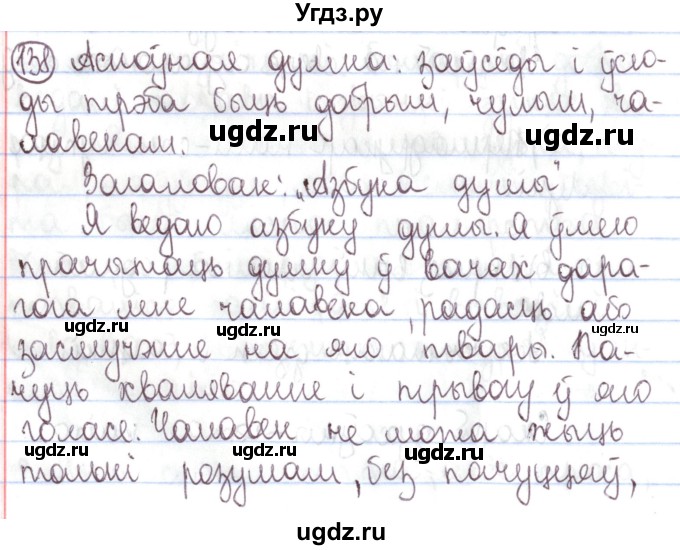 Угдз.ру
138 Асноўная думка: заўсёды і ўсю-
ды трэба быць добрым, чулым, ча-
ugdz.ru ugdz.ru
лавекам.
Загаловак: „Азбука душы"
Я ведаю азбуку душы. Я ўмею
прачытаць думку ў вачах дара-
гога мне чалавека, радасць або
ugdz.ru ugdz.ru
засмучэнне на яго твары. Па-
чуць хваляванне і трывогу ў яго
голасе. Чалавек не можа жыць
ugdz.ru ugdz.ru
толькі розумам, без пачуццяў,
ugdz.ru